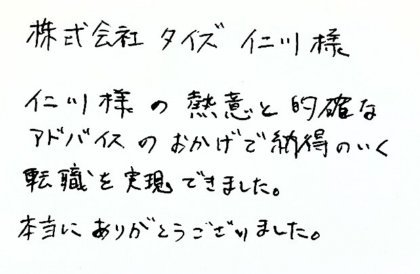 株式会社 タイズ 仁川様
仁川様の熱意と的確な
アドバイスのおかげで納得のいく
転職を実現できました。
本当にありがとうございました。